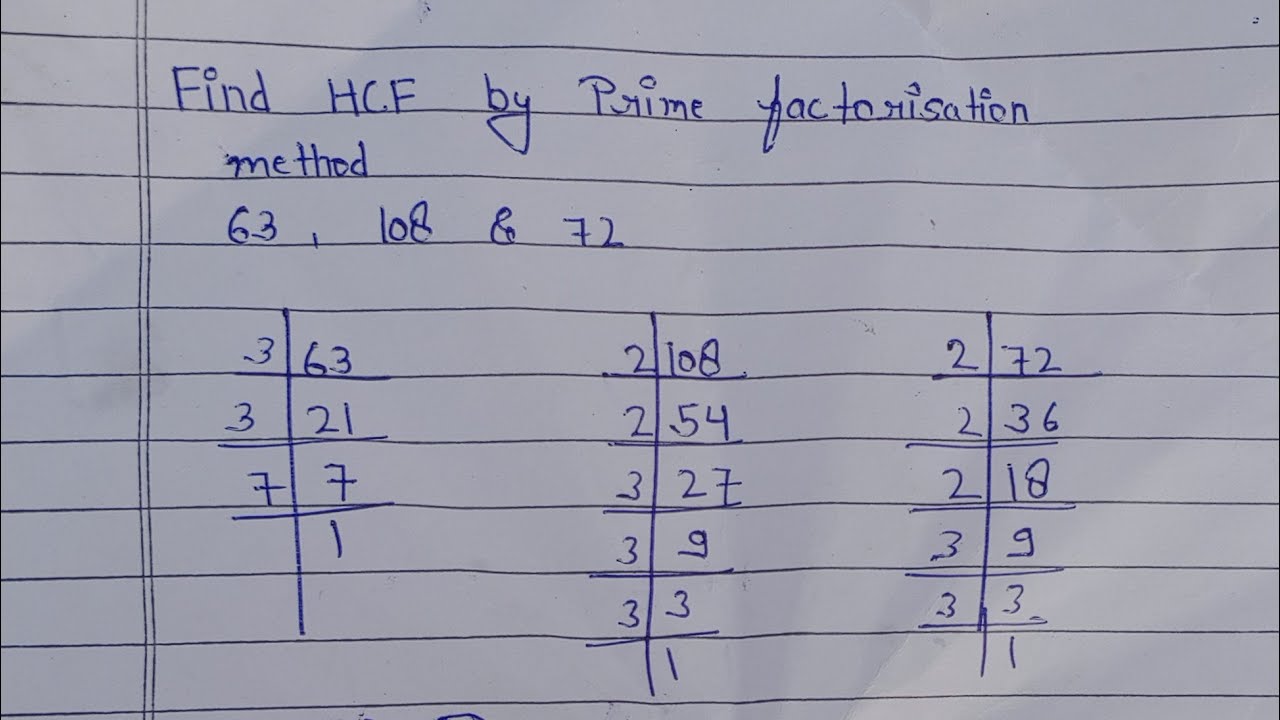 Find HCF by Prime factorisation
method
63, 108 & 72
3 | 63   2 | 108   2 | 72
3 | 21   2 | 54   2 | 36
7 | 7   3 | 27   2 | 18
1   3 | 9   3 | 9
3 | 3   3 | 3
1   1